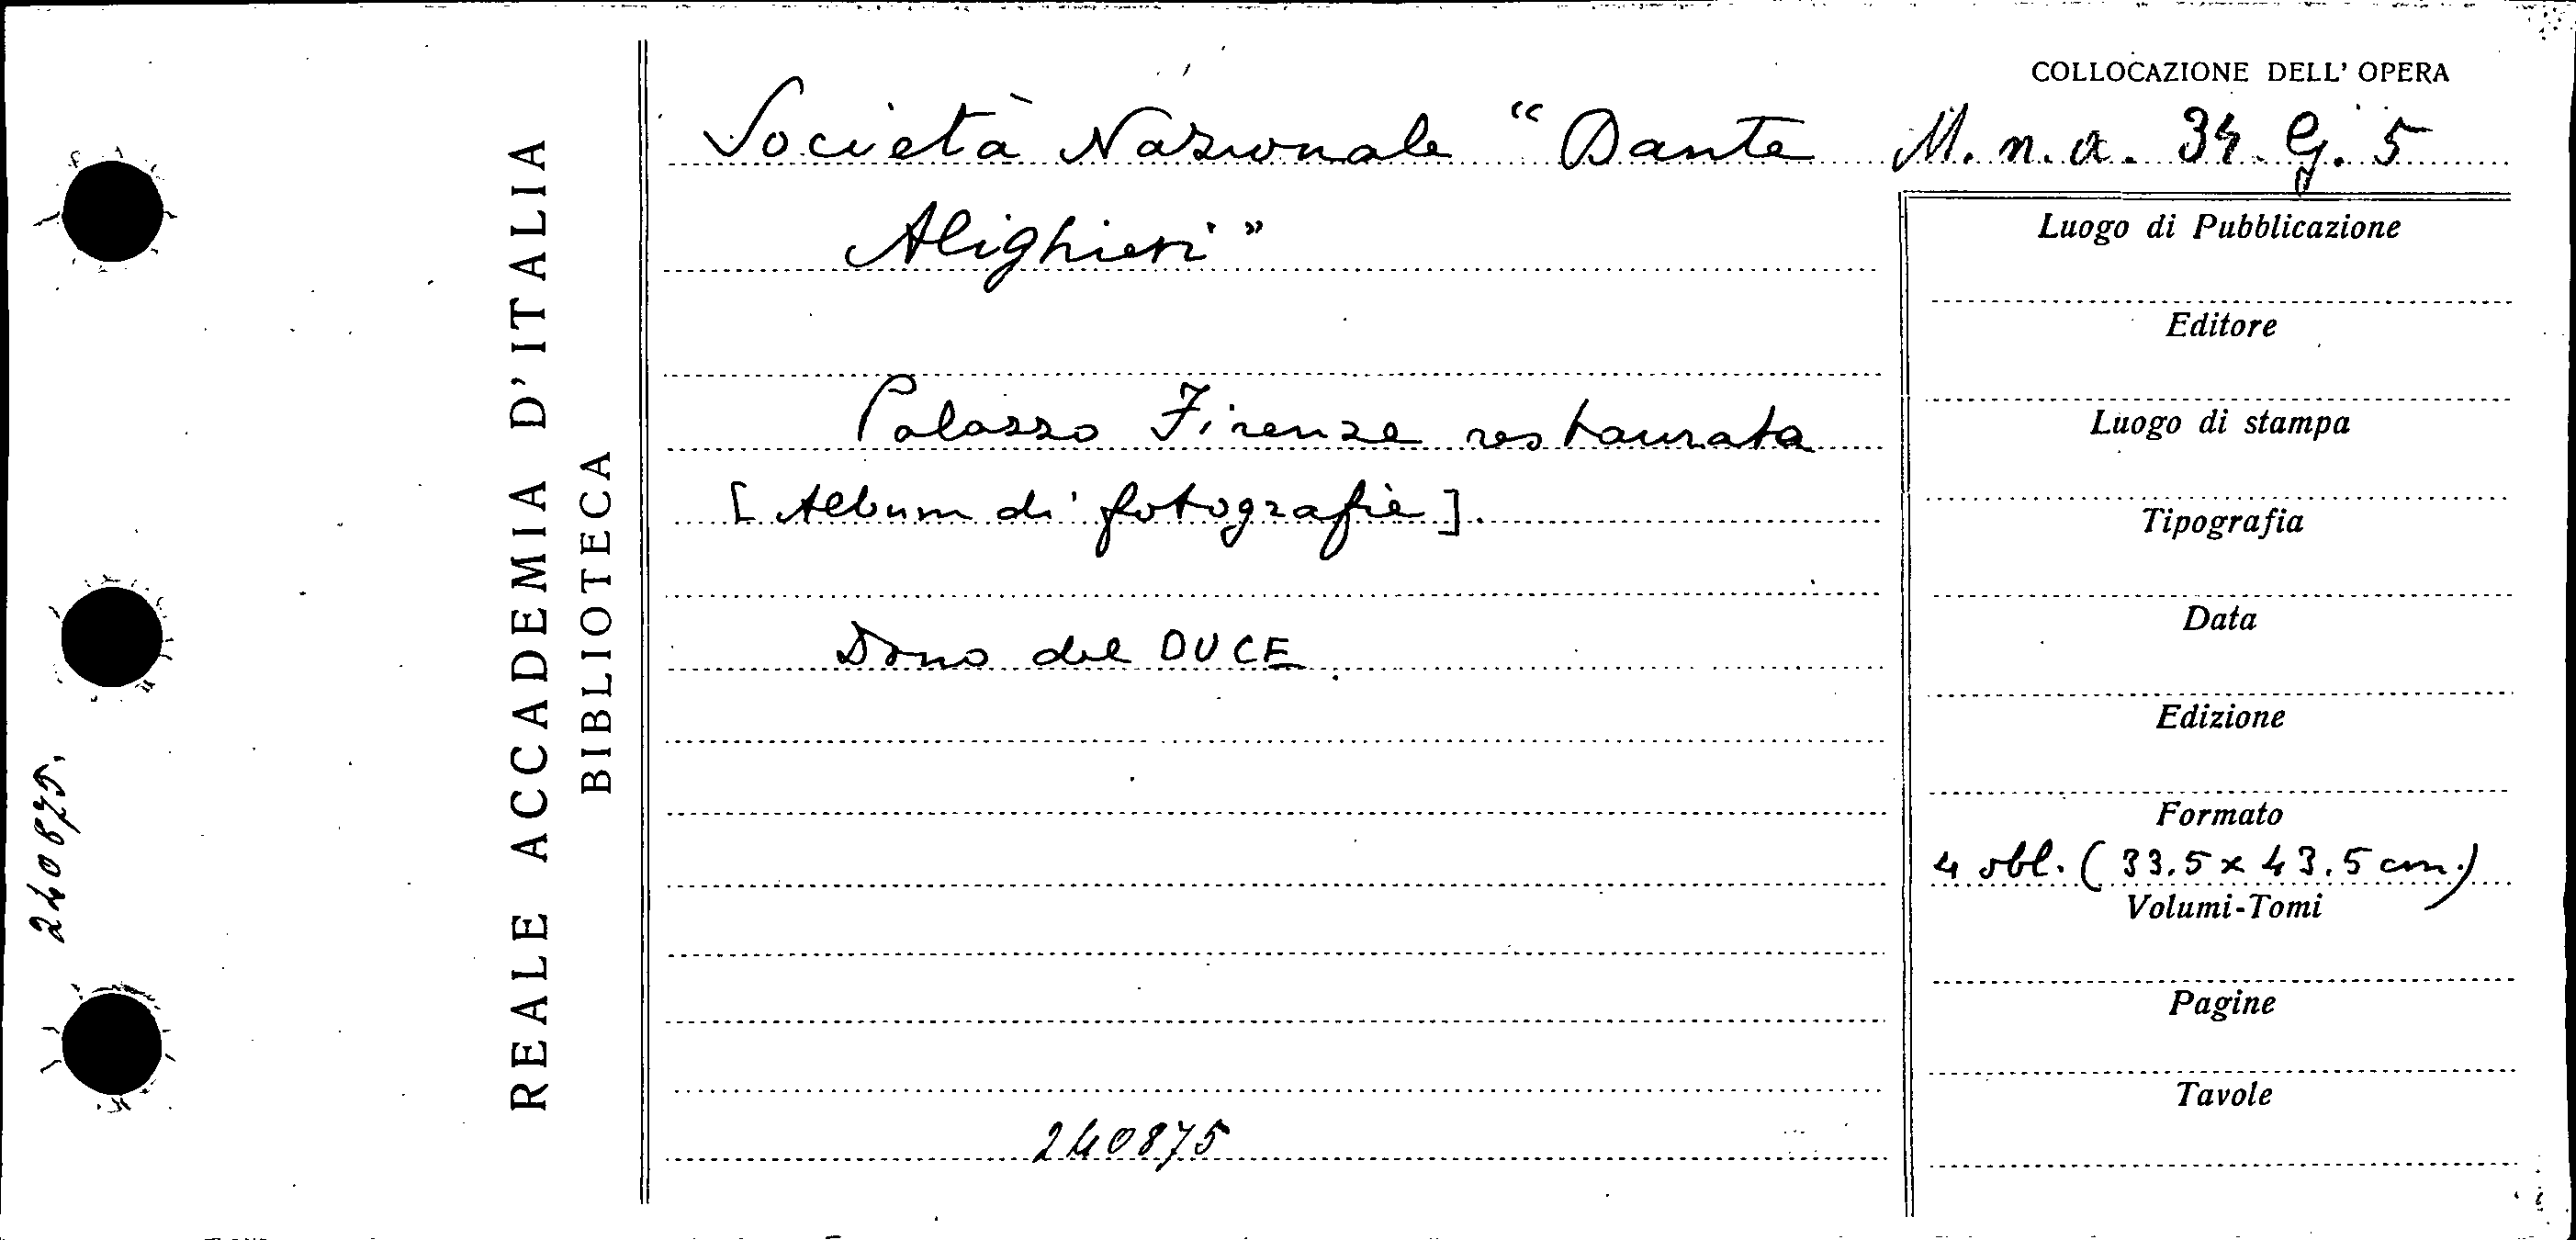 COLLOCAZIONE DELL' OPERA
Società Nazionale “Dante
M. n. a. 34. G. 5
Alighieri”
Palazzo Firenze restaurata
[Album di fotografie].
Dono del DUCE
240875
Luogo di Pubblicazione
Editore
Luogo di stampa
Tipografia
Data
Edizione
Formato
4 obl. (33.5 x 43.5 cm.)
Volumi-Tomi
Pagine
Tavole
REALE ACCADEMIA D'ITALIA
BIBLIOTECA
240875.